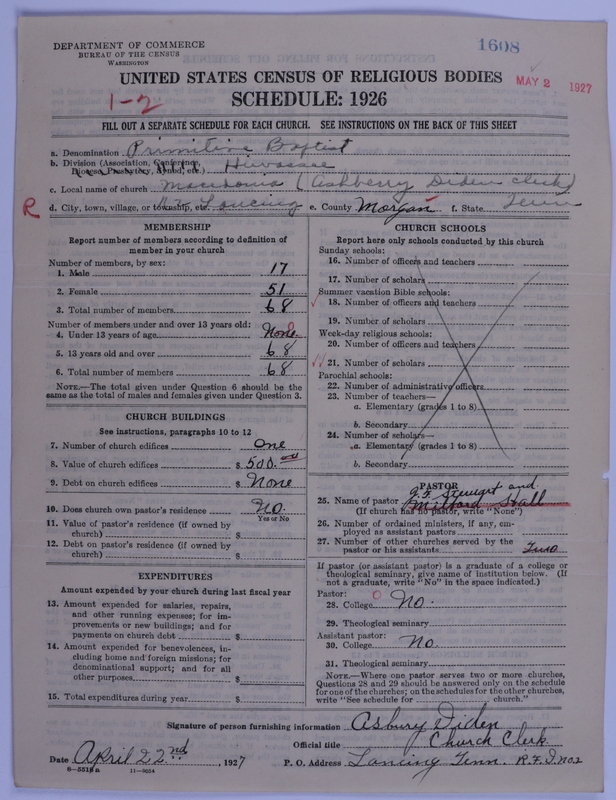 DEPARTMENT OF COMMERCE
BUREAU OF THE CENSUS
WASHINGTON
1608
UNITED STATES CENSUS OF RELIGIOUS BODIES
MAY 2 1927
1-2
SCHEDULE: 1926
FILL OUT A SEPARATE SCHEDULE FOR EACH CHURCH. SEE INSTRUCTIONS ON THE BACK OF THIS SHEET
a. Denomination Primitive Baptist
b. Division (Association, Conference, Diocese, Presbytery, Synod, etc.) Hiwassee
c. Local name of church Macedonia (Ashberry Diden clerk)
R d. City, town, village, or township, etc. Lancing e. County Morgan f. State Tenn
MEMBERSHIP
Report number of members according to definition of member in your church
Number of members, by sex:
1. Male 17
2. Female 51
3. Total number of members 68
Number of members under and over 13 years old:
4. Under 13 years of age None
5. 13 years old and over 68
6. Total number of members 68
NOTE.—The total given under Question 6 should be the same as the total of males and females given under Question 3.
CHURCH BUILDINGS
See instructions, paragraphs 10 to 12
7. Number of church edifices One
8. Value of church edifices $ 500.00
9. Debt on church edifices $ None
10. Does church own pastor's residence No.
Yes or No
11. Value of pastor's residence (if owned by church) $
12. Debt on pastor's residence (if owned by church) $
EXPENDITURES
Amount expended by your church during last fiscal year
13. Amount expended for salaries, repairs, and other running expenses; for improvements or new buildings; and for payments on church debt $
14. Amount expended for benevolences, including home and foreign missions; for denominational support; and for all other purposes $
15. Total expenditures during year $
CHURCH SCHOOLS
Report here only schools conducted by this church
Sunday schools:
16. Number of officers and teachers
17. Number of scholars
Summer vacation Bible schools:
18. Number of officers and teachers
19. Number of scholars
Week-day religious schools:
20. Number of officers and teachers
21. Number of scholars
Parochial schools:
22. Number of administrative officers
23. Number of teachers—
a. Elementary (grades 1 to 8)
b. Secondary
24. Number of scholars—
a. Elementary (grades 1 to 8)
b. Secondary
PASTOR
25. Name of pastor J. F. Stewart and Milford Hall
(If church has no pastor, write "None")
26. Number of ordained ministers, if any, employed as assistant pastors
27. Number of other churches served by the pastor or his assistants Two
If pastor (or assistant pastor) is a graduate of a college or theological seminary, give name of institution below. (If not a graduate, write "No" in the space indicated.)
Pastor:
28. College No.
29. Theological seminary
Assistant pastor:
30. College No.
31. Theological seminary
NOTE.—Where one pastor serves two or more churches, Questions 28 and 29 should be answered only on the schedule for one of the churches; on the schedules for the other churches, write "See schedule for church."
Signature of person furnishing information Asbury Diden
Official title Church Clerk
Date April 22nd, 1927 P. O. Address Lancing Tenn. R.F.D. No. 2
8—5518a 11—9624